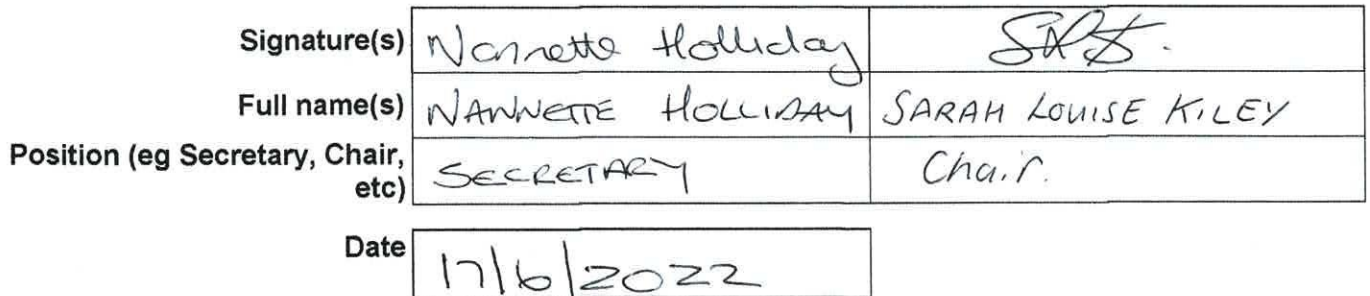 Signature(s) Nannette Holliday
Full name(s) NANNETTE HOLLIDAY SARAH LOUISE KILEY
Position (eg Secretary, Chair,
etc) SECRETARY Chair.
Date 17/6/2022